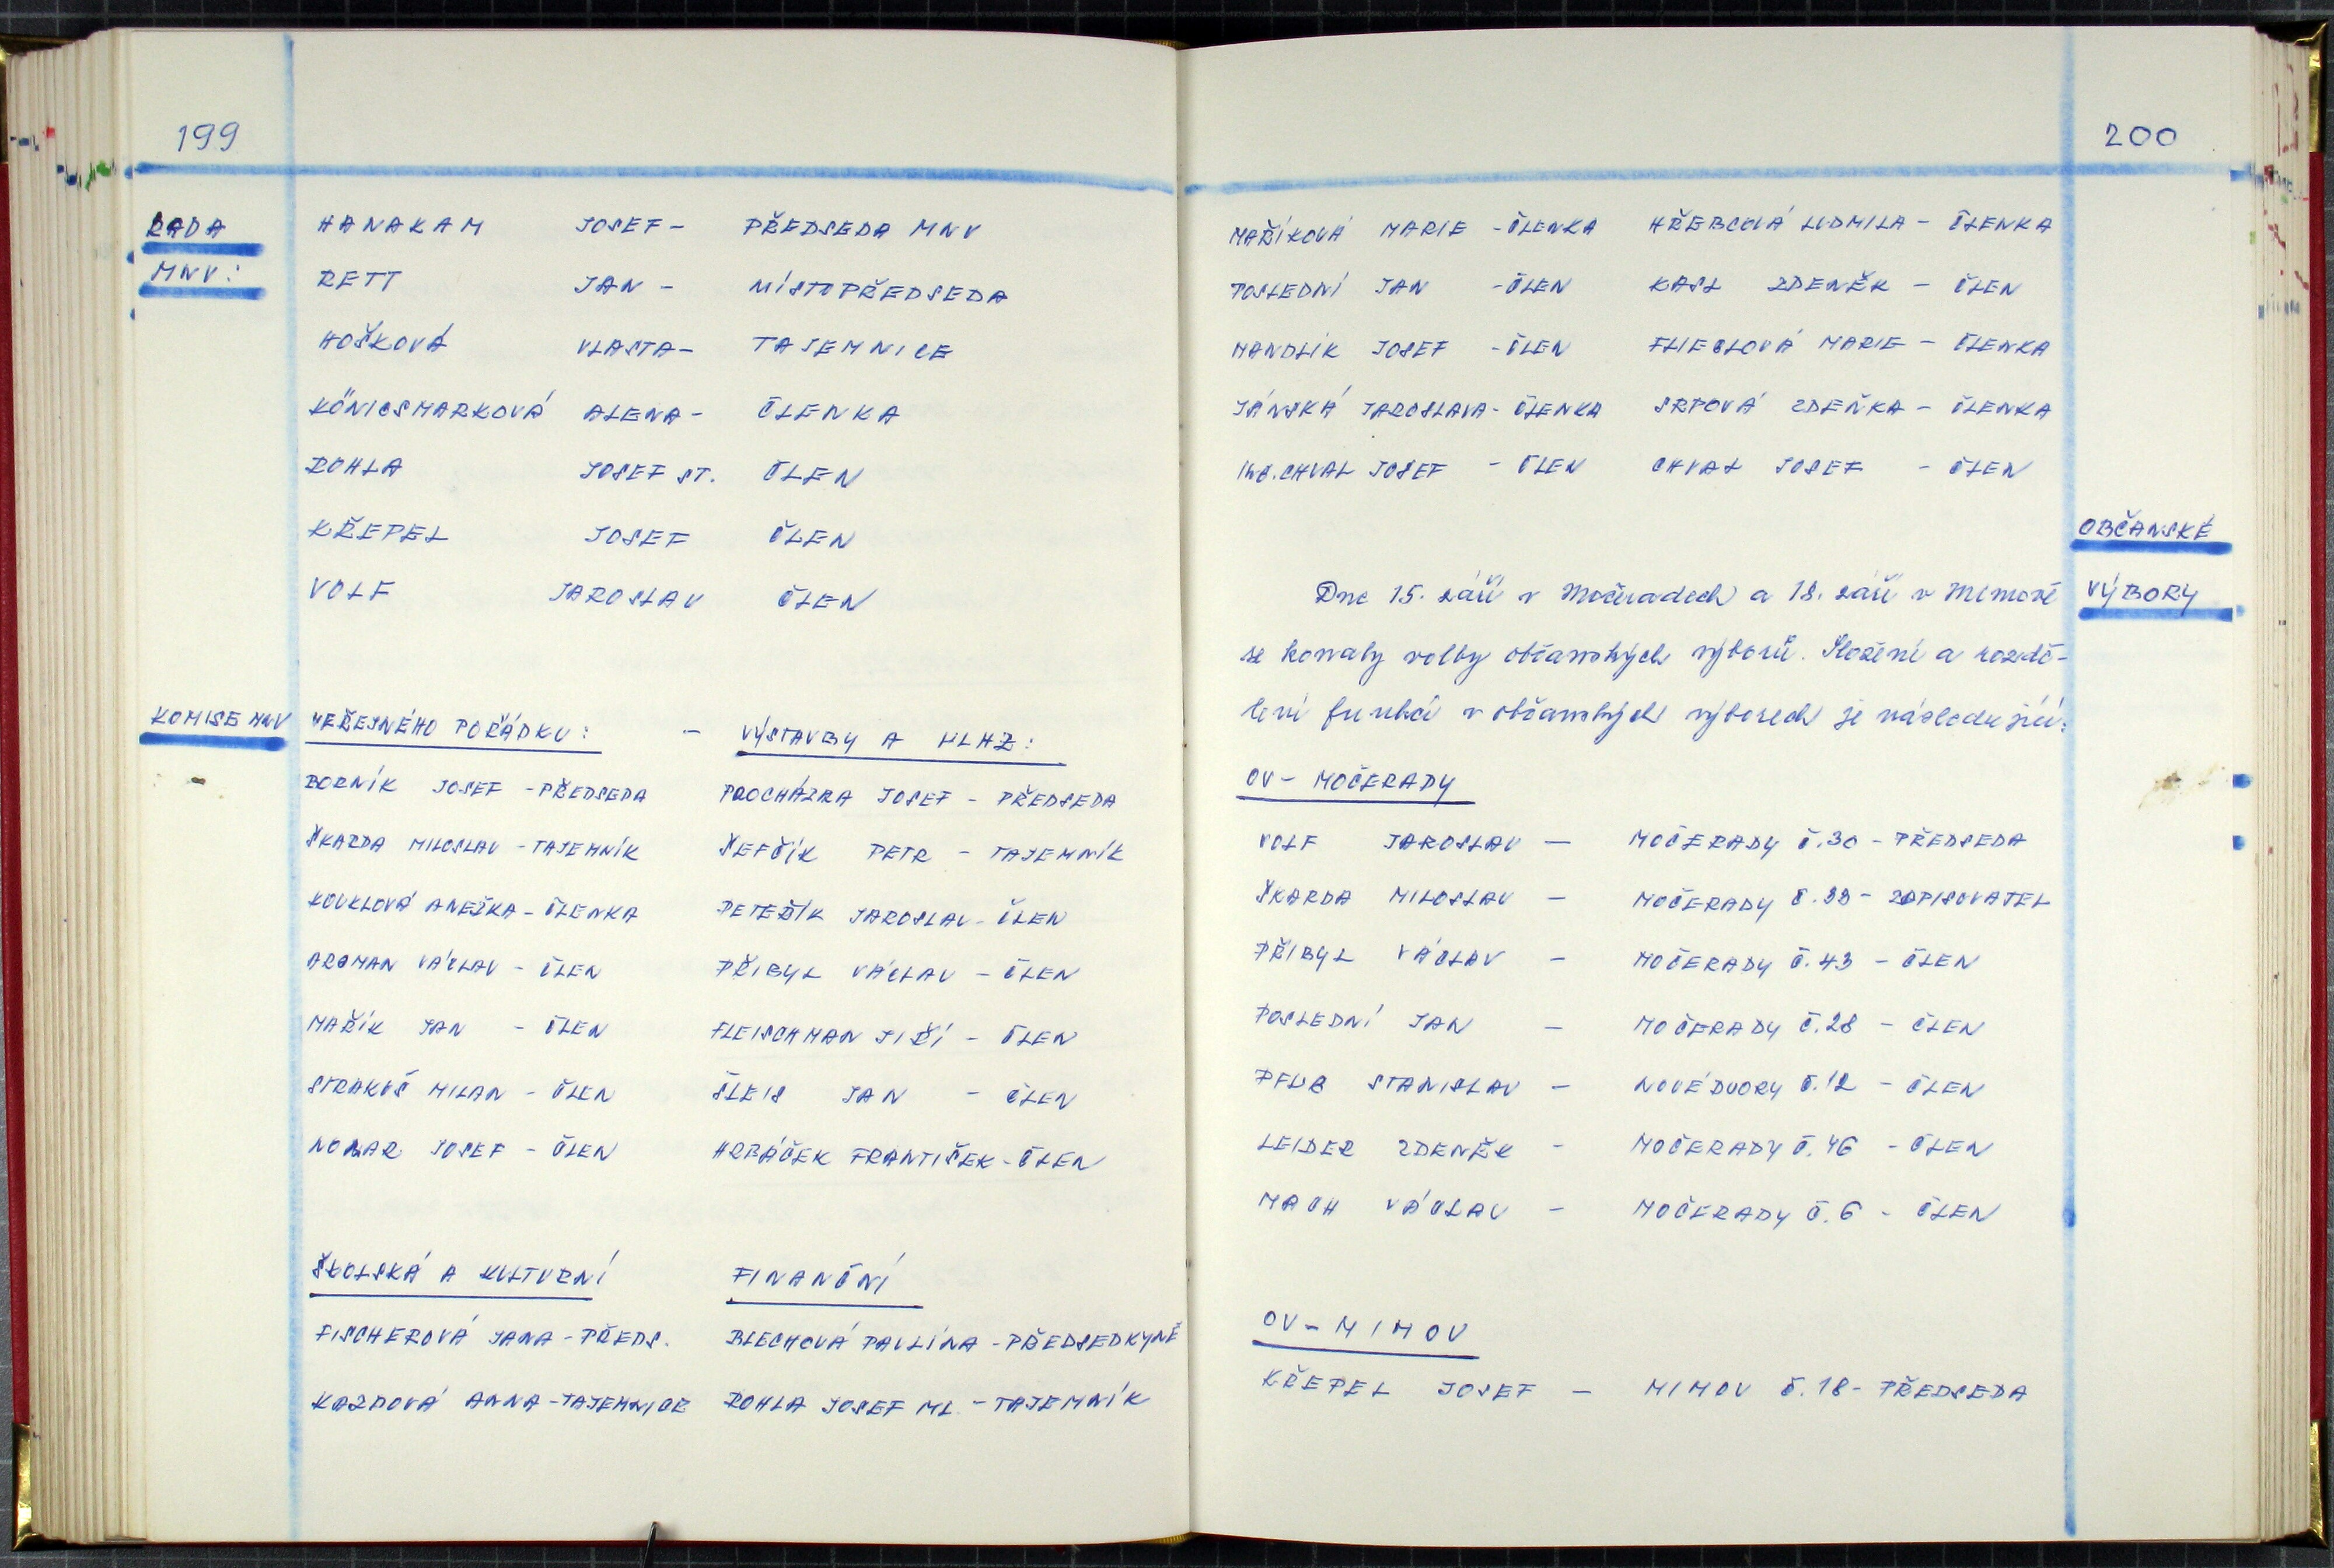 199
RADA
MNV:
HANAKAM JOSEF - PŘEDSEDA MNV
RETT JAN - MÍSTOPŘEDSEDA
HOŠKOVÁ VLASTA - TAJEMNICE
KÖNIGSMARKOVÁ ALENA - ČLENKA
ROHLA JOSEF ST. ČLEN
KŘEPEL JOSEF ČLEN
VOLF JAROSLAV ČLEN
KOMISE MNV
VEŘEJNÉHO POŘÁDKU: - VÝSTAVBY A
BORNÍK JOSEF - PŘEDSEDA PROCHÁZKA JOSEF - PŘEDSEDA
ŠKARDA MILOSLAV - TAJEMNÍK ŠEFČÍK PETR - TAJEMNÍK
KOUKLOVÁ ANEŽKA - ČLENKA PETEŘÍK JAROSLAV - ČLEN
VÁCLAV - ČLEN PŘIBYL VÁCLAV - ČLEN
MAŘÍK JAN - ČLEN FLEISCHMAN JIŘÍ - ČLEN
STRAKOŠ MILAN - ČLEN ŠLEIS JAN - ČLEN
JOSEF - ČLEN HRBÁČEK FRANTIŠEK - ČLEN
ŠKOLSKÁ A KULTURNÍ FINANČNÍ
FISCHEROVÁ JANA - PŘEDS. BLECHOVÁ PAVLÍNA - PŘEDSEDKYNĚ
KAZDOVÁ ANNA - TAJEMNICE ROHLA JOSEF ML. - TAJEMNÍK
200
MAŘÍKOVÁ MARIE - ČLENKA HŘEBCOVÁ LUDMILA - ČLENKA
POSLEDNÍ JAN - ČLEN KASL ZDENĚK - ČLEN
MANDLÍK JOSEF - ČLEN MARIE - ČLENKA
JÁNSKÁ JAROSLAVA - ČLENKA SRPOVÁ ZDEŇKA - ČLENKA
ING. CHVAL JOSEF - ČLEN CHVAL JOSEF - ČLEN
OBČANSKÉ
VÝBORY
Dne 15. září v Močeradech a 18. září v Mimově
se konaly volby občanských výborů. Složení a rozdě-
lení funkcí v občanských výborech je následující:
OV - MOČERADY
VOLF JAROSLAV - MOČERADY č. 30 - PŘEDSEDA
ŠKARDA MILOSLAV - MOČERADY č. - ZAPISOVATEL
PŘIBYL VÁCLAV - MOČERADY č. 43 - ČLEN
POSLEDNÍ JAN - MOČERADY č. 28 - ČLEN
STANISLAV - NOVÉ DVORY č. 12 - ČLEN
LEIDER ZDENĚK - MOČERADY č. 46 - ČLEN
MACH VÁCLAV - MOČERADY č. 6 - ČLEN
OV - MIMOV
KŘEPEL JOSEF - MIMOV č. 18 - PŘEDSEDA